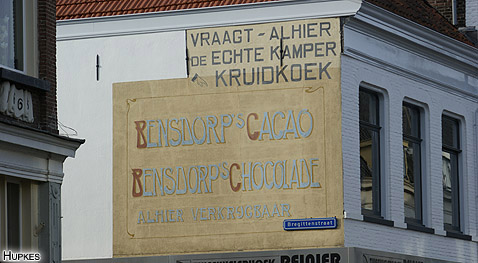 VRAAGT - ALHIER
DE ECHTE KAMPER
KRUIDKOEK
BENSDORP'S CACAO
BENSDORP'S CHOCOLADE
ALHIER VERKRIJGBAAR
Bregittenstraat
16
HUPKES